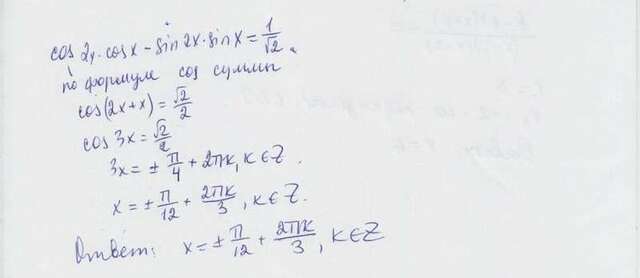 cos 2x·cos x − sin 2x·sin x = 1/√2.
по формуле cos суммы
cos(2x+x) = √2/2
cos 3x = √2/2
3x = ± π/4 + 2πк, к∈Z.
x = ± π/12 + 2πк/3, к∈Z.
Ответ: x = ± π/12 + 2πк/3, к∈Z